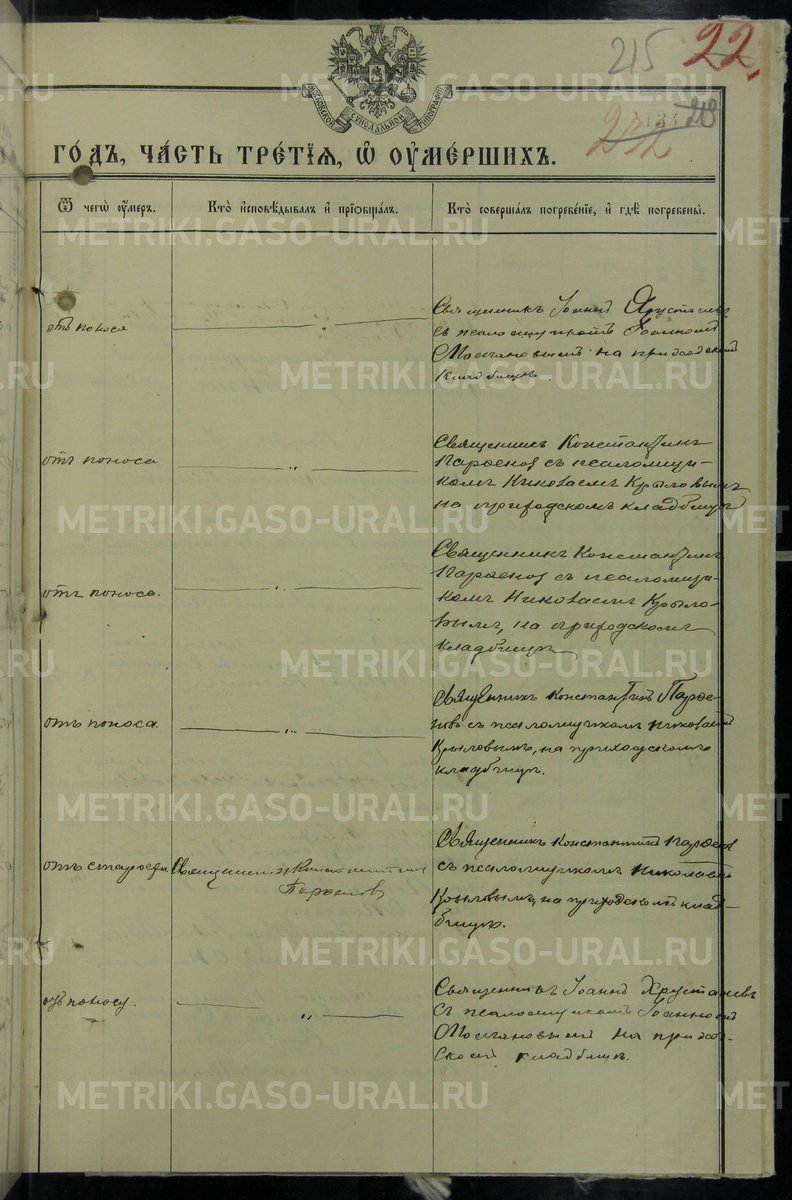 215
22.
МОСКОВСКОЙ СѴНОДАЛЬНОЙ ТИПОГРАФІИ
ГО́ДЪ, ЧА́СТЬ ТРЕ́ТІѦ, Ѡ҆ ОУ҆МЕ́РШИХЪ.
Ѿ чегѡ̀ ᲂу҆́меръ.
Кто̀ и҆сповѣ́дывалъ и҆ прїѡбща́лъ.
Кто̀ соверша́лъ погребе́нїе, и҆ гдѣ̀ погребены̀.
отъ поноса
Священникъ Іоаннъ Хрусталевъ
съ псаломщикомъ Іоанномъ
Молчановымъ на приходскомъ
кладбищѣ.
отъ поноса
Священникъ Константинъ
Парѳенов съ псаломщи-
комъ Николаемъ Крыловымъ
на приходскомъ кладбищѣ
отъ поноса.
Священникъ Константинъ
Парѳенов съ псаломщи-
комъ Николаемъ Крыло-
вымъ, на приходскомъ
кладбищѣ
отъ поноса
Священникъ Константинъ Парѳе-
новъ съ псаломщикомъ Николаемъ
Крыловымъ, на приходскомъ
кладбищѣ.
отъ старости
Священникъ Константинъ
Парѳенов
Священникъ Константинъ Парѳенов
съ псаломщикомъ Николаемъ
Крыловымъ, на приходскомъ клад-
бищѣ.
отъ поносу.
Священникъ Іоаннъ Хрусталевъ
съ псаломщикомъ Іоанномъ
Молчановымъ на приход-
скомъ кладбищѣ.
METRIKI.GASO-URAL.RU